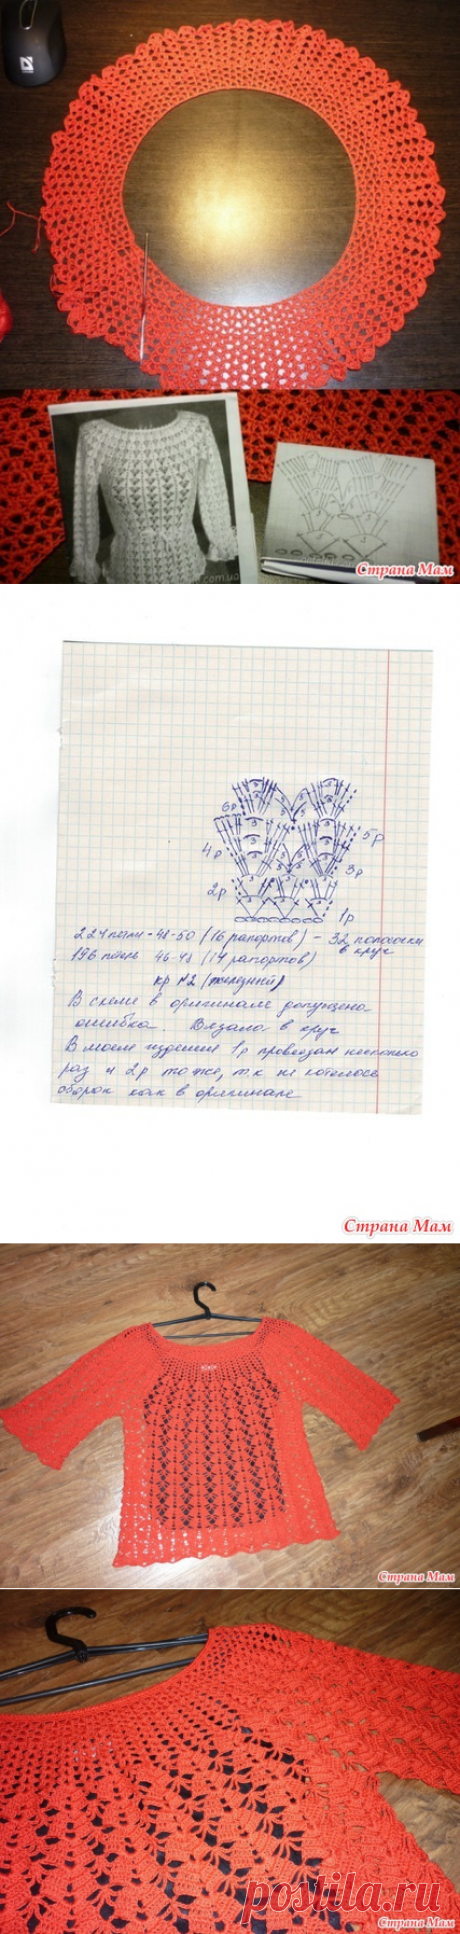 com.ua
Страна Мам
6р
5р
4р
3р
2р
1р
224 петли - 48-50 (16 рапортов) - 32 полосочки
в круг
196 петель 46-48 (14 рапортов)
кр №2 (железный)
В схеме в оригинале допущена
ошибка. Вязала в круг
В моем изделии 1р провязан несколько
раз и 2р тоже, т.к не хотелось
оборок как в оригинале
Страна Мам
Страна Мам
postila.ru
Страна Мам